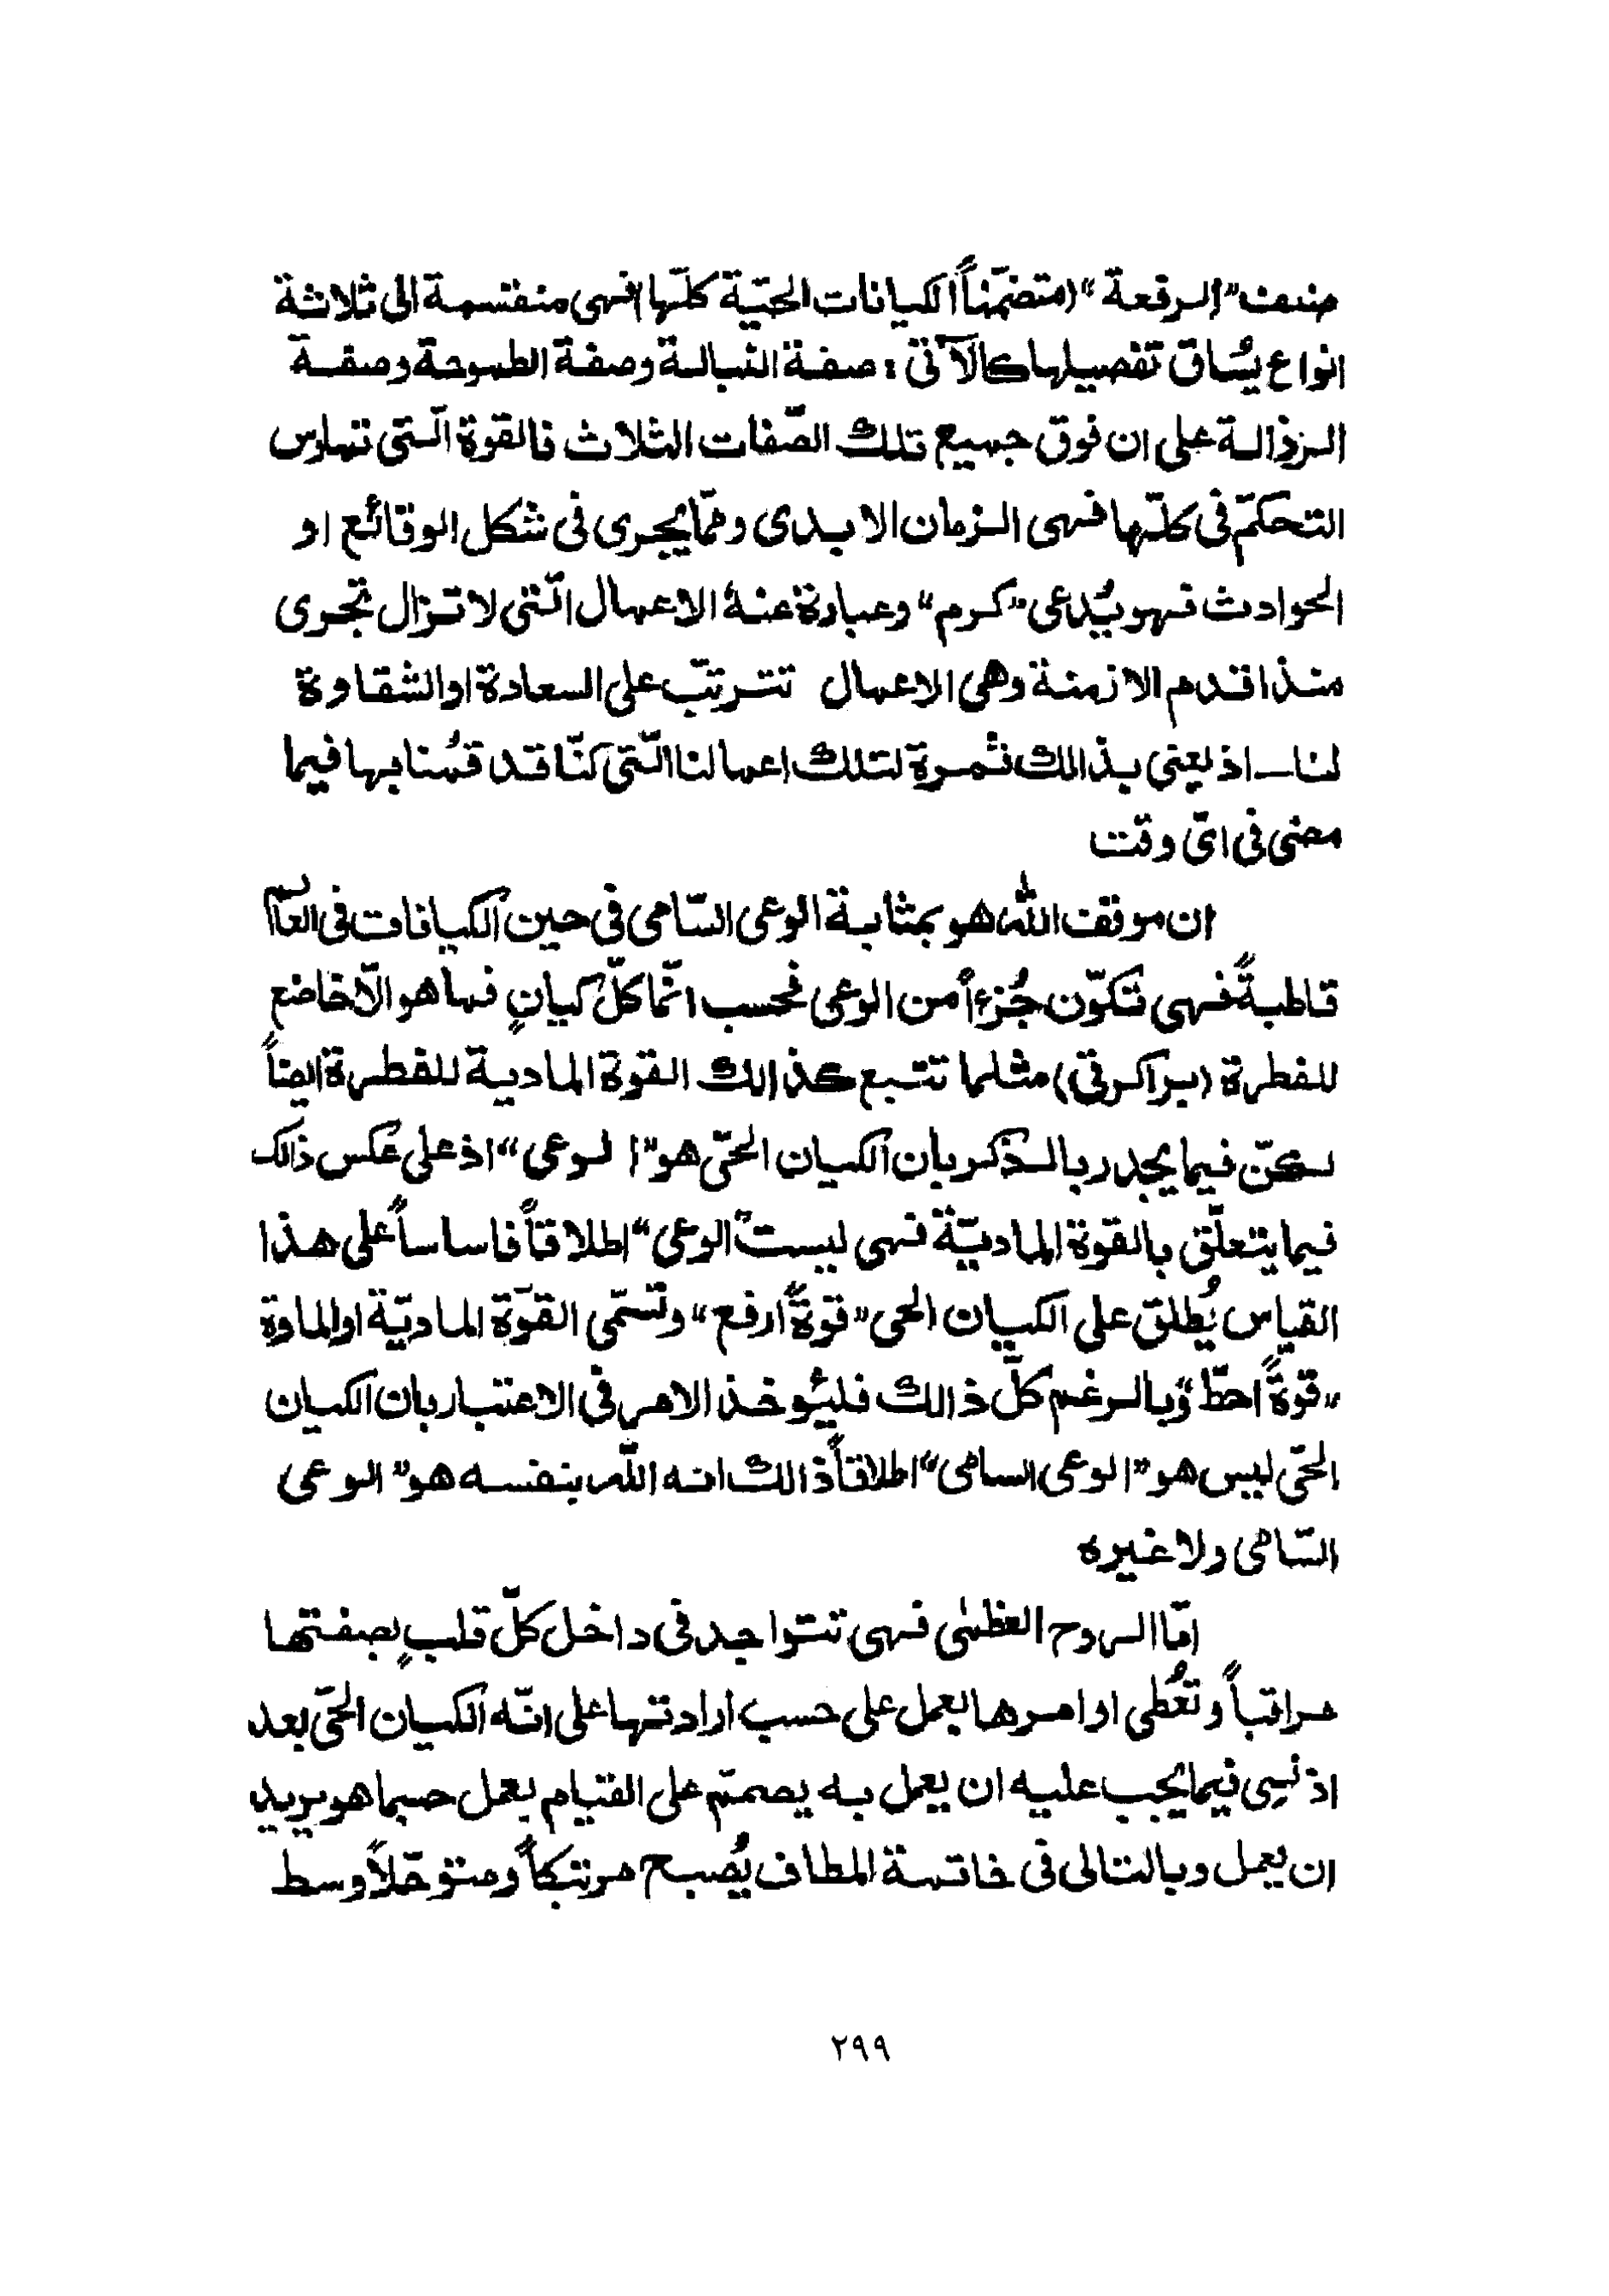 صنف "الرفعة" (متضمّناً الكيانات الحيّة كلّها) فهى منقسمة الى ثلاثة
انواع يُساق تفصيلها كالآتى : صفة النبالة وصفة الطموحة وصفة
الرذالة على ان فوق جميع تلك الصّفات الثلاث فالقوة الّتى تهاوس
التحكّم فى كلّها فهى الزمان الابدى وممّا يجرى فى شكل الوقائع او
الحوادث فهو يُدعى "كرم" وعبارة عنه الاعمال الّتى لا تزال تجرى
منذ اقدم الازمنة وهى الاعمال تترتّب على السعادة او الشقاوة
لنا — اذ يعنى بذالك ثمرة لتلك اعمالنا الّتى كنّا قد قمُنا بها فيما
مضى فى اىّ وقت
ان موقف اللّٰه هو بمثابة الوعى السّامى فى حين الكيانات فى العالم
قاطبةً فهى تكوّن جُزءاً من الوعى فحسب انّما كلّ كيانٍ فما هو الّا خاضع
للفطرة (براكرتى) مثلما تتبع كذالك القوة المادية للفطرة ايضاً
لكنّ فيما يجدر بالذكر بان الكيان الحىّ هو "الوعى" اذ على عكس ذالك
فيما يتعلّق بالقوة الماديّة فهى ليست "الوعى" اطلاقاً فاساساً على هذا
القياس يُطلق على الكيان الحى "قوةً ارفع" وتسمّى القوّة الماديّة او المادة
"قوةً احطّ" وبالرغم كلّ ذالك فليُؤخذ الامر فى الاعتبار بان الكيان
الحىّ ليس هو "الوعى السامى" اطلاقاً ذالك انه اللّٰه بنفسه هو "الوعى
السّامى ولا غيره
امّا الروح العظمٰى فهى تتواجد فى داخل كلّ قلبٍ بصفتها
مراقباً وتعُطى اوامرها ليعمل على حسب ارادتها على انّه الكيان الحىّ بعد
اذ نسِى فيما يجب عليه ان يعمل به يصمّم على القيام بعمل حسبما هو يريد
ان يعمل وبالتالى فى خاتمة المطاف يُصبح مرتبكاً ومتوحّلاً وسط
٢٩٩